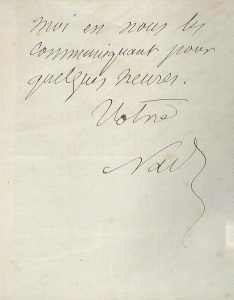 moi en nous les
communiquant pour
quelques heures.
Votre